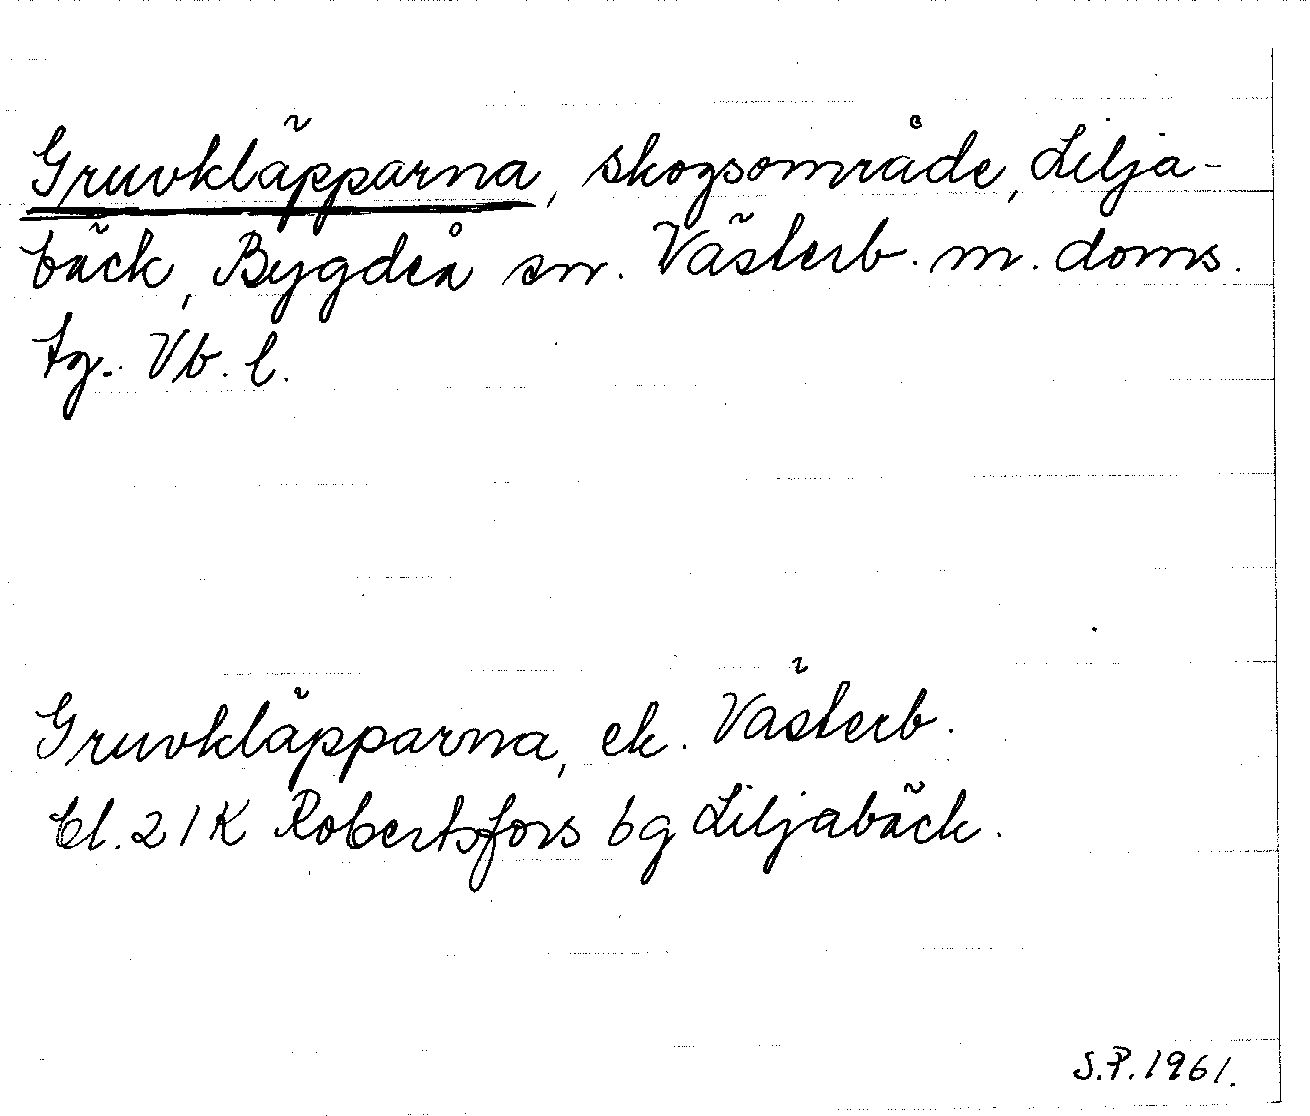 Gruvkläpparna, skogsområde, Lilja-
bäck, Bygdeå sn. Västerb. m. doms.
tg. Vb. l.
Gruvkläpparna, ek. Västerb.
bl. 21K Robertsfors bg Liljabäck.
S.P. 1961.